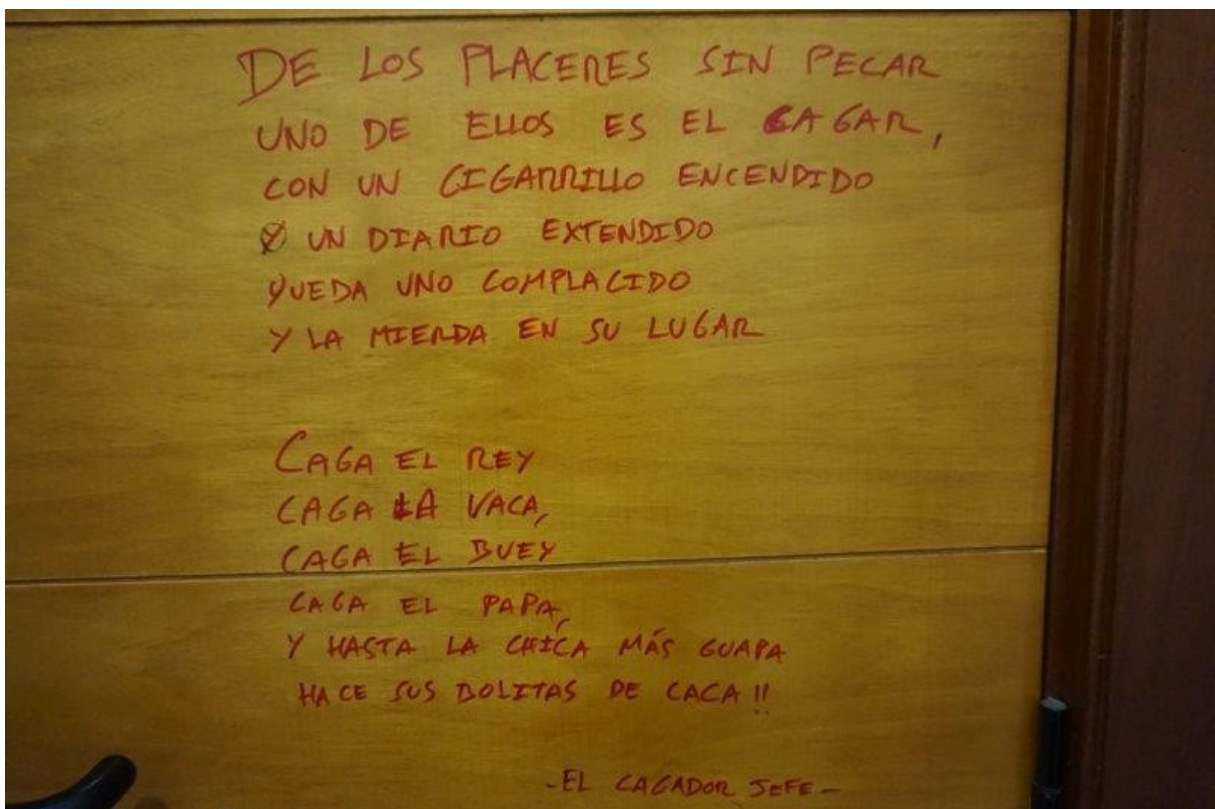 DE LOS PLACERES SIN PECAR
UNO DE ELLOS ES EL CAGAR,
CON UN CIGARRILLO ENCENDIDO
Y UN DIARIO EXTENDIDO
QUEDA UNO COMPLACIDO
Y LA MIERDA EN SU LUGAR
CAGA EL REY
CAGA LA VACA,
CAGA EL BUEY
CAGA EL PAPA,
Y HASTA LA CHICA MÁS GUAPA
HACE SUS BOLITAS DE CACA!!
-EL CAGADOR JEFE-